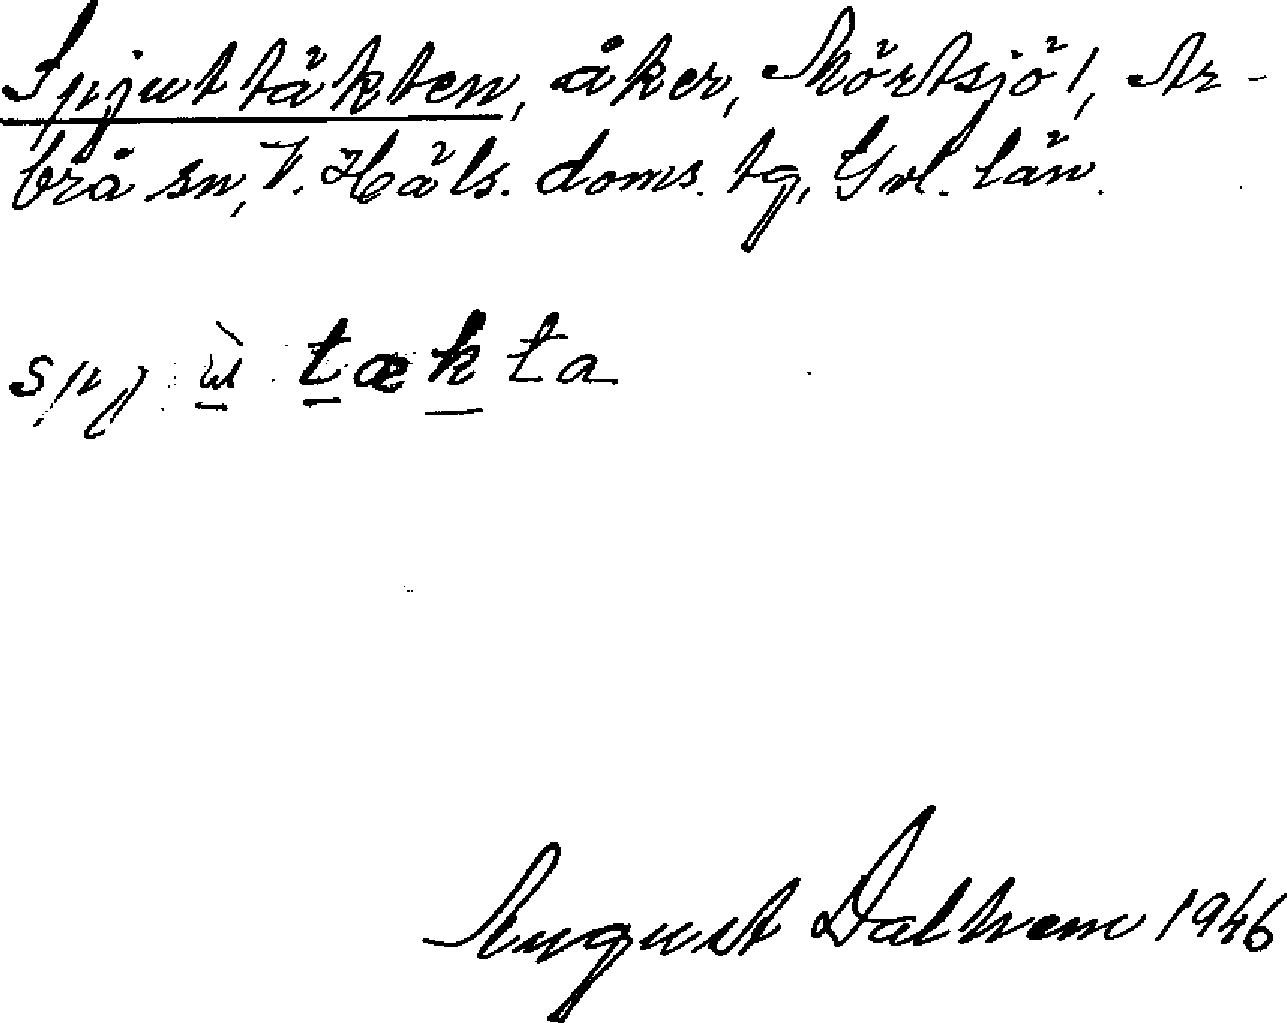 Spjuttäkten, åker, Mörtsjö 1, Ar-
brå sn, V. Häls. doms. tg, Gvl. län.
spj ù tækta
August Dalhem 1946